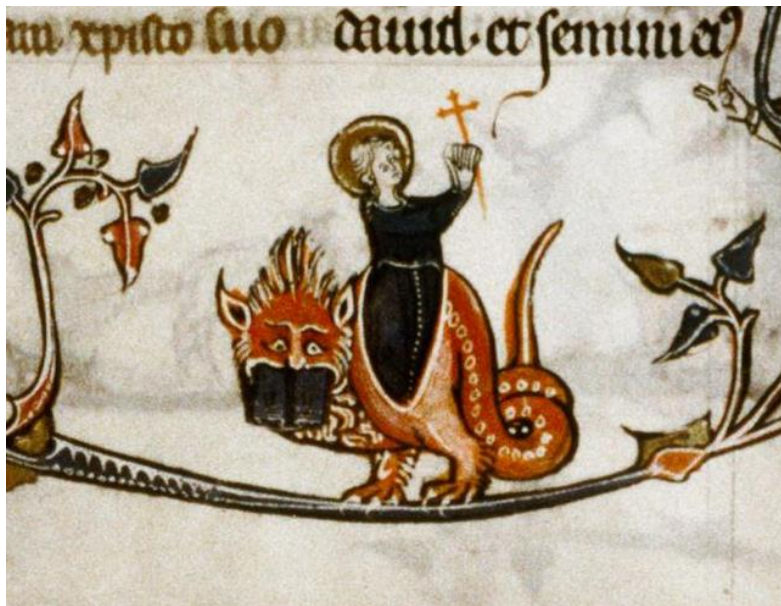 am xpisto suo dauid. et semini eiꝰ